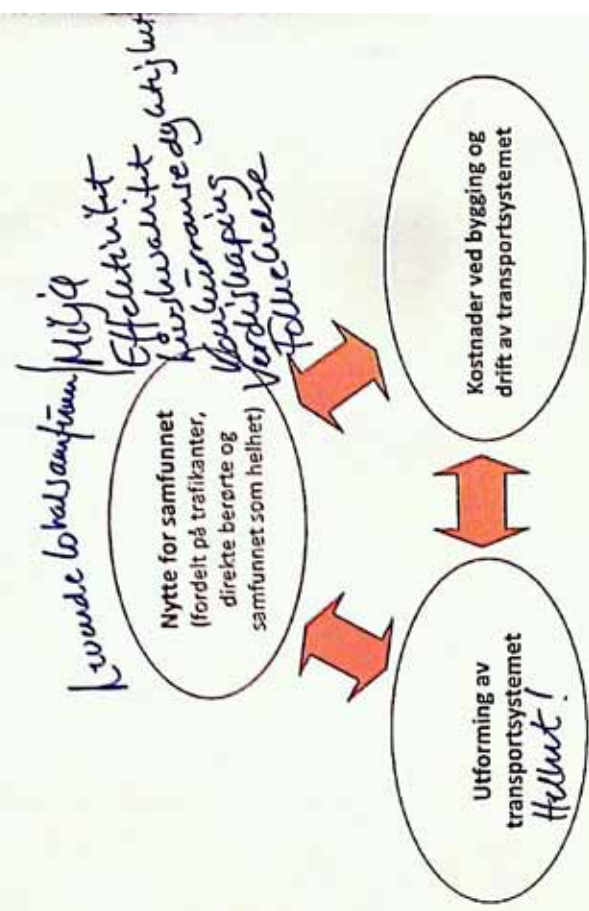 Levende lokalsamfunn
Miljø
Effektivitet
Livskvalitet
Konkurransedyktighet
Verdiskaping
Folkehelse
Nytte for samfunnet
(fordelt på trafikanter,
direkte berørte og
samfunnet som helhet)
Utforming av
transportsystemet
Helhet!
Kostnader ved bygging og
drift av transportsystemet